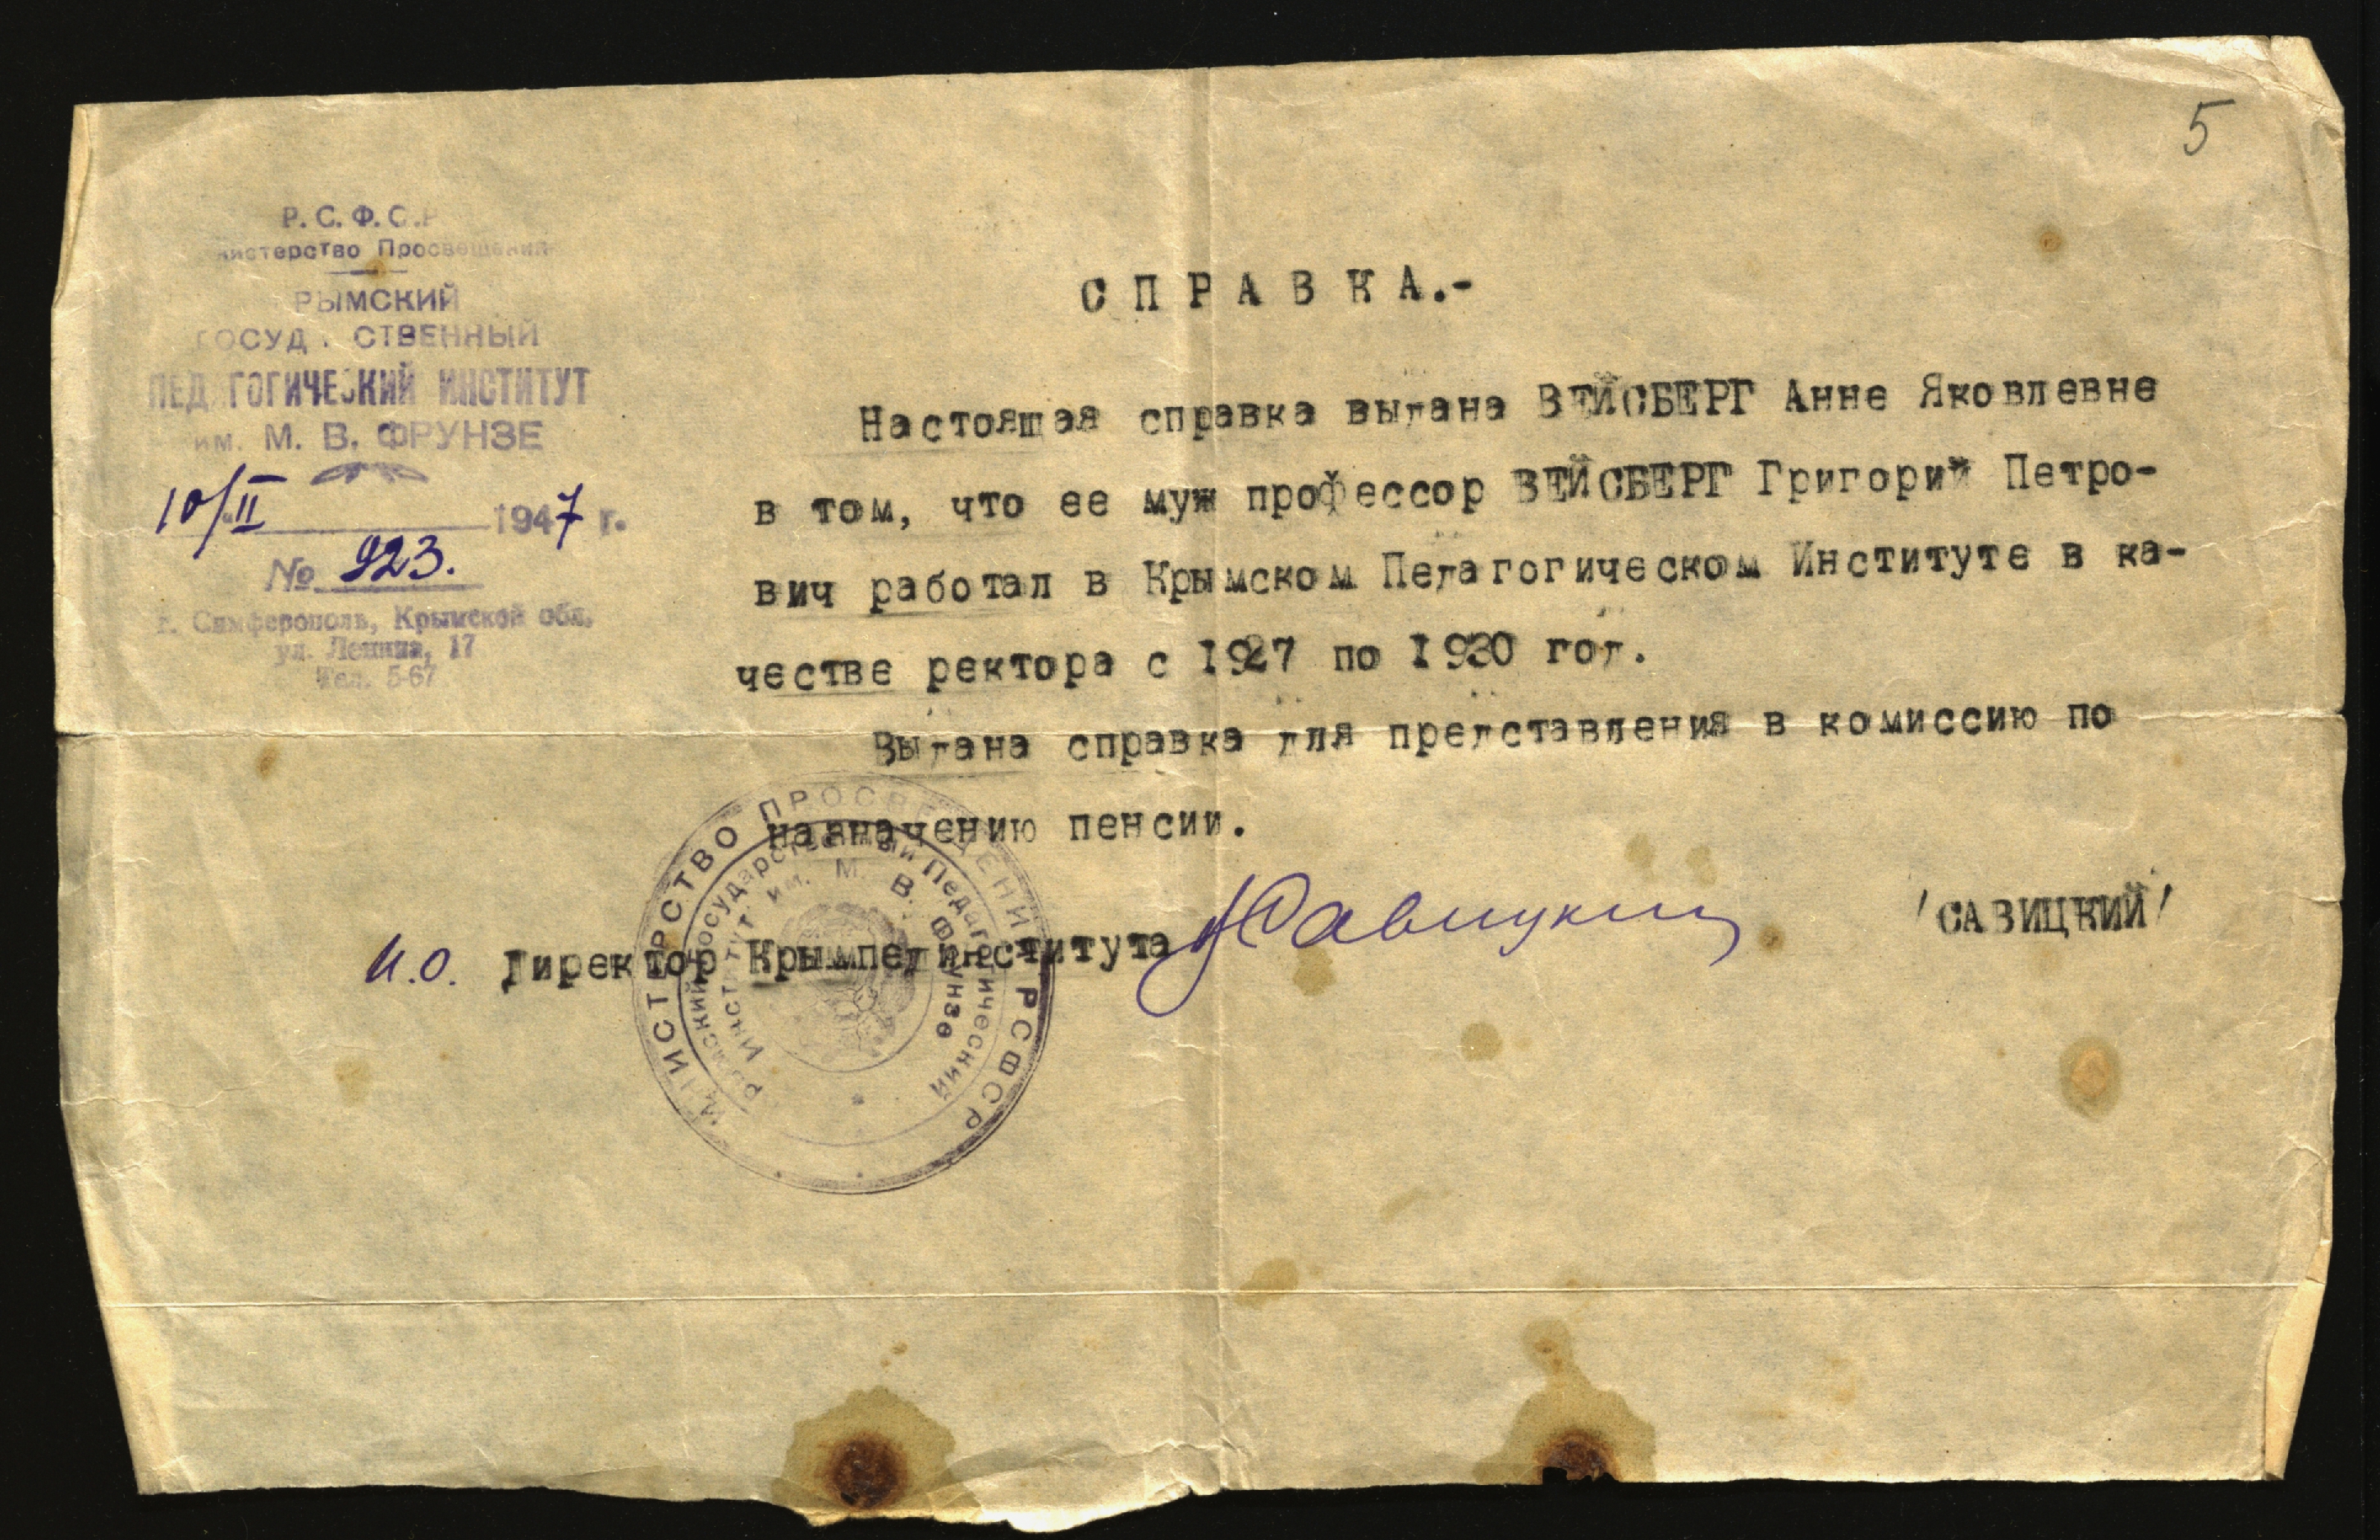 5
Р. С. Ф. С. Р
нистерство Просвещения
РЫМСКИЙ
ГОСУД СТВЕННЫЙ
ПЕД ГОГИЧЕСКИЙ ИНСТИТУТ
им. М. В. ФРУНЗЕ
10/II 1947 г.
№ 923.
г. Симферополь, Крымской обл.
ул. Ленина, 17
Тел. 5-67
СПРАВКА.-
Настоящая справка выдана ВЕЙСБЕРГ Анне Яковлевне
в том, что ее муж профессор ВЕЙСБЕРГ Григорий Петро-
вич работал в Крымском Педагогическом Институте в ка-
честве ректора с 1927 по 1930 год.
Выдана справка для представления в комиссию по
назначению пенсии.
И.О. Директор Крымпединститута Савицкий /САВИЦКИЙ/
МИНИСТЕРСТВО ПРОСВЕЩЕНИЯ РСФСР
рымский Государственный Педагогический
Институт им. М. В. Фрунзе